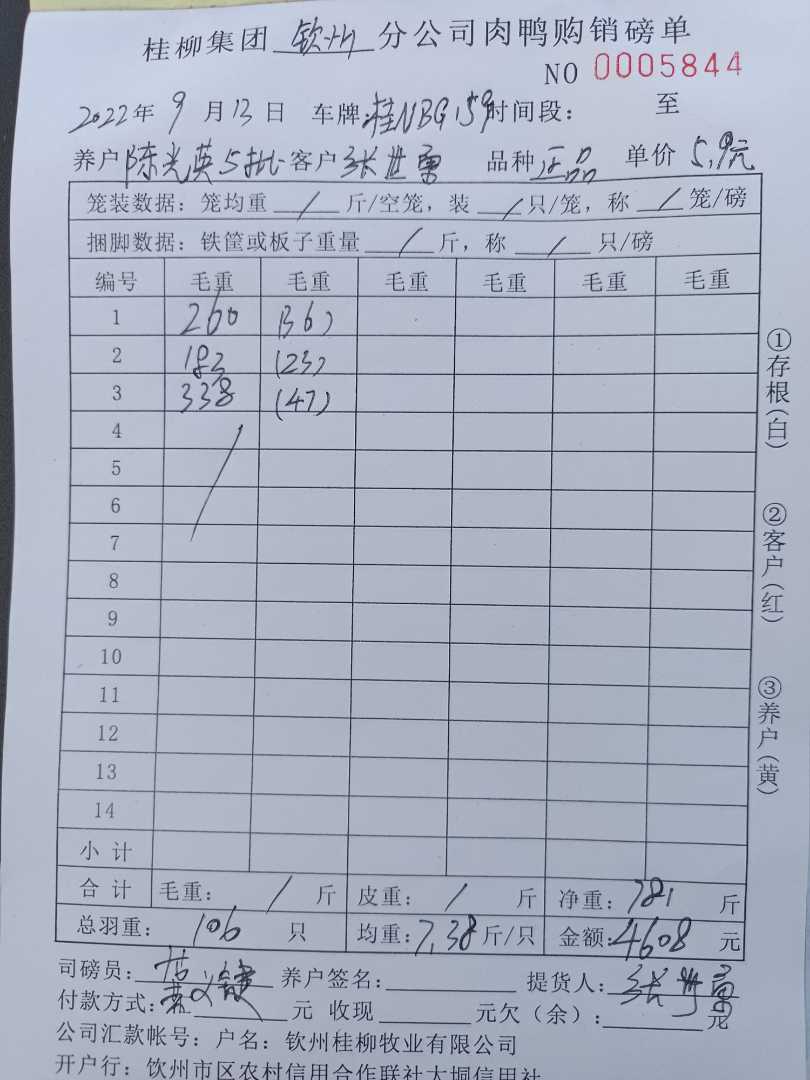 桂柳集团 钦州 分公司肉鸭购销磅单
NO 0005844
2022年 9 月 13 日 车牌:桂NBG159 时间段: 至
养户 陈光英5批 客户 张世勇 品种 正品 单价 5.9元
笼装数据: 笼均重 / 斤/空笼, 装 / 只/笼, 称 / 笼/磅
捆脚数据: 铁筐或板子重量 / 斤, 称 / 只/磅
编号 毛重 毛重 毛重 毛重 毛重 毛重
1 260 (36)
2 183 (23)
3 338 (47)
4
5
6
7
8
9
10
11
12
13
14
小 计
合 计 毛重: / 斤 皮重: / 斤 净重: 781 斤
总羽重: 106 只 均重: 7.38 斤/只 金额: 4608 元
司磅员: 养户签名: 提货人: 张世勇
付款方式: 元 收现 元欠(余): 元
公司汇款帐号: 户名: 钦州桂柳牧业有限公司
开户行: 钦州市区农村信用合作联社大垌信用社
①存根(白)
②客户(红)
③养户(黄)